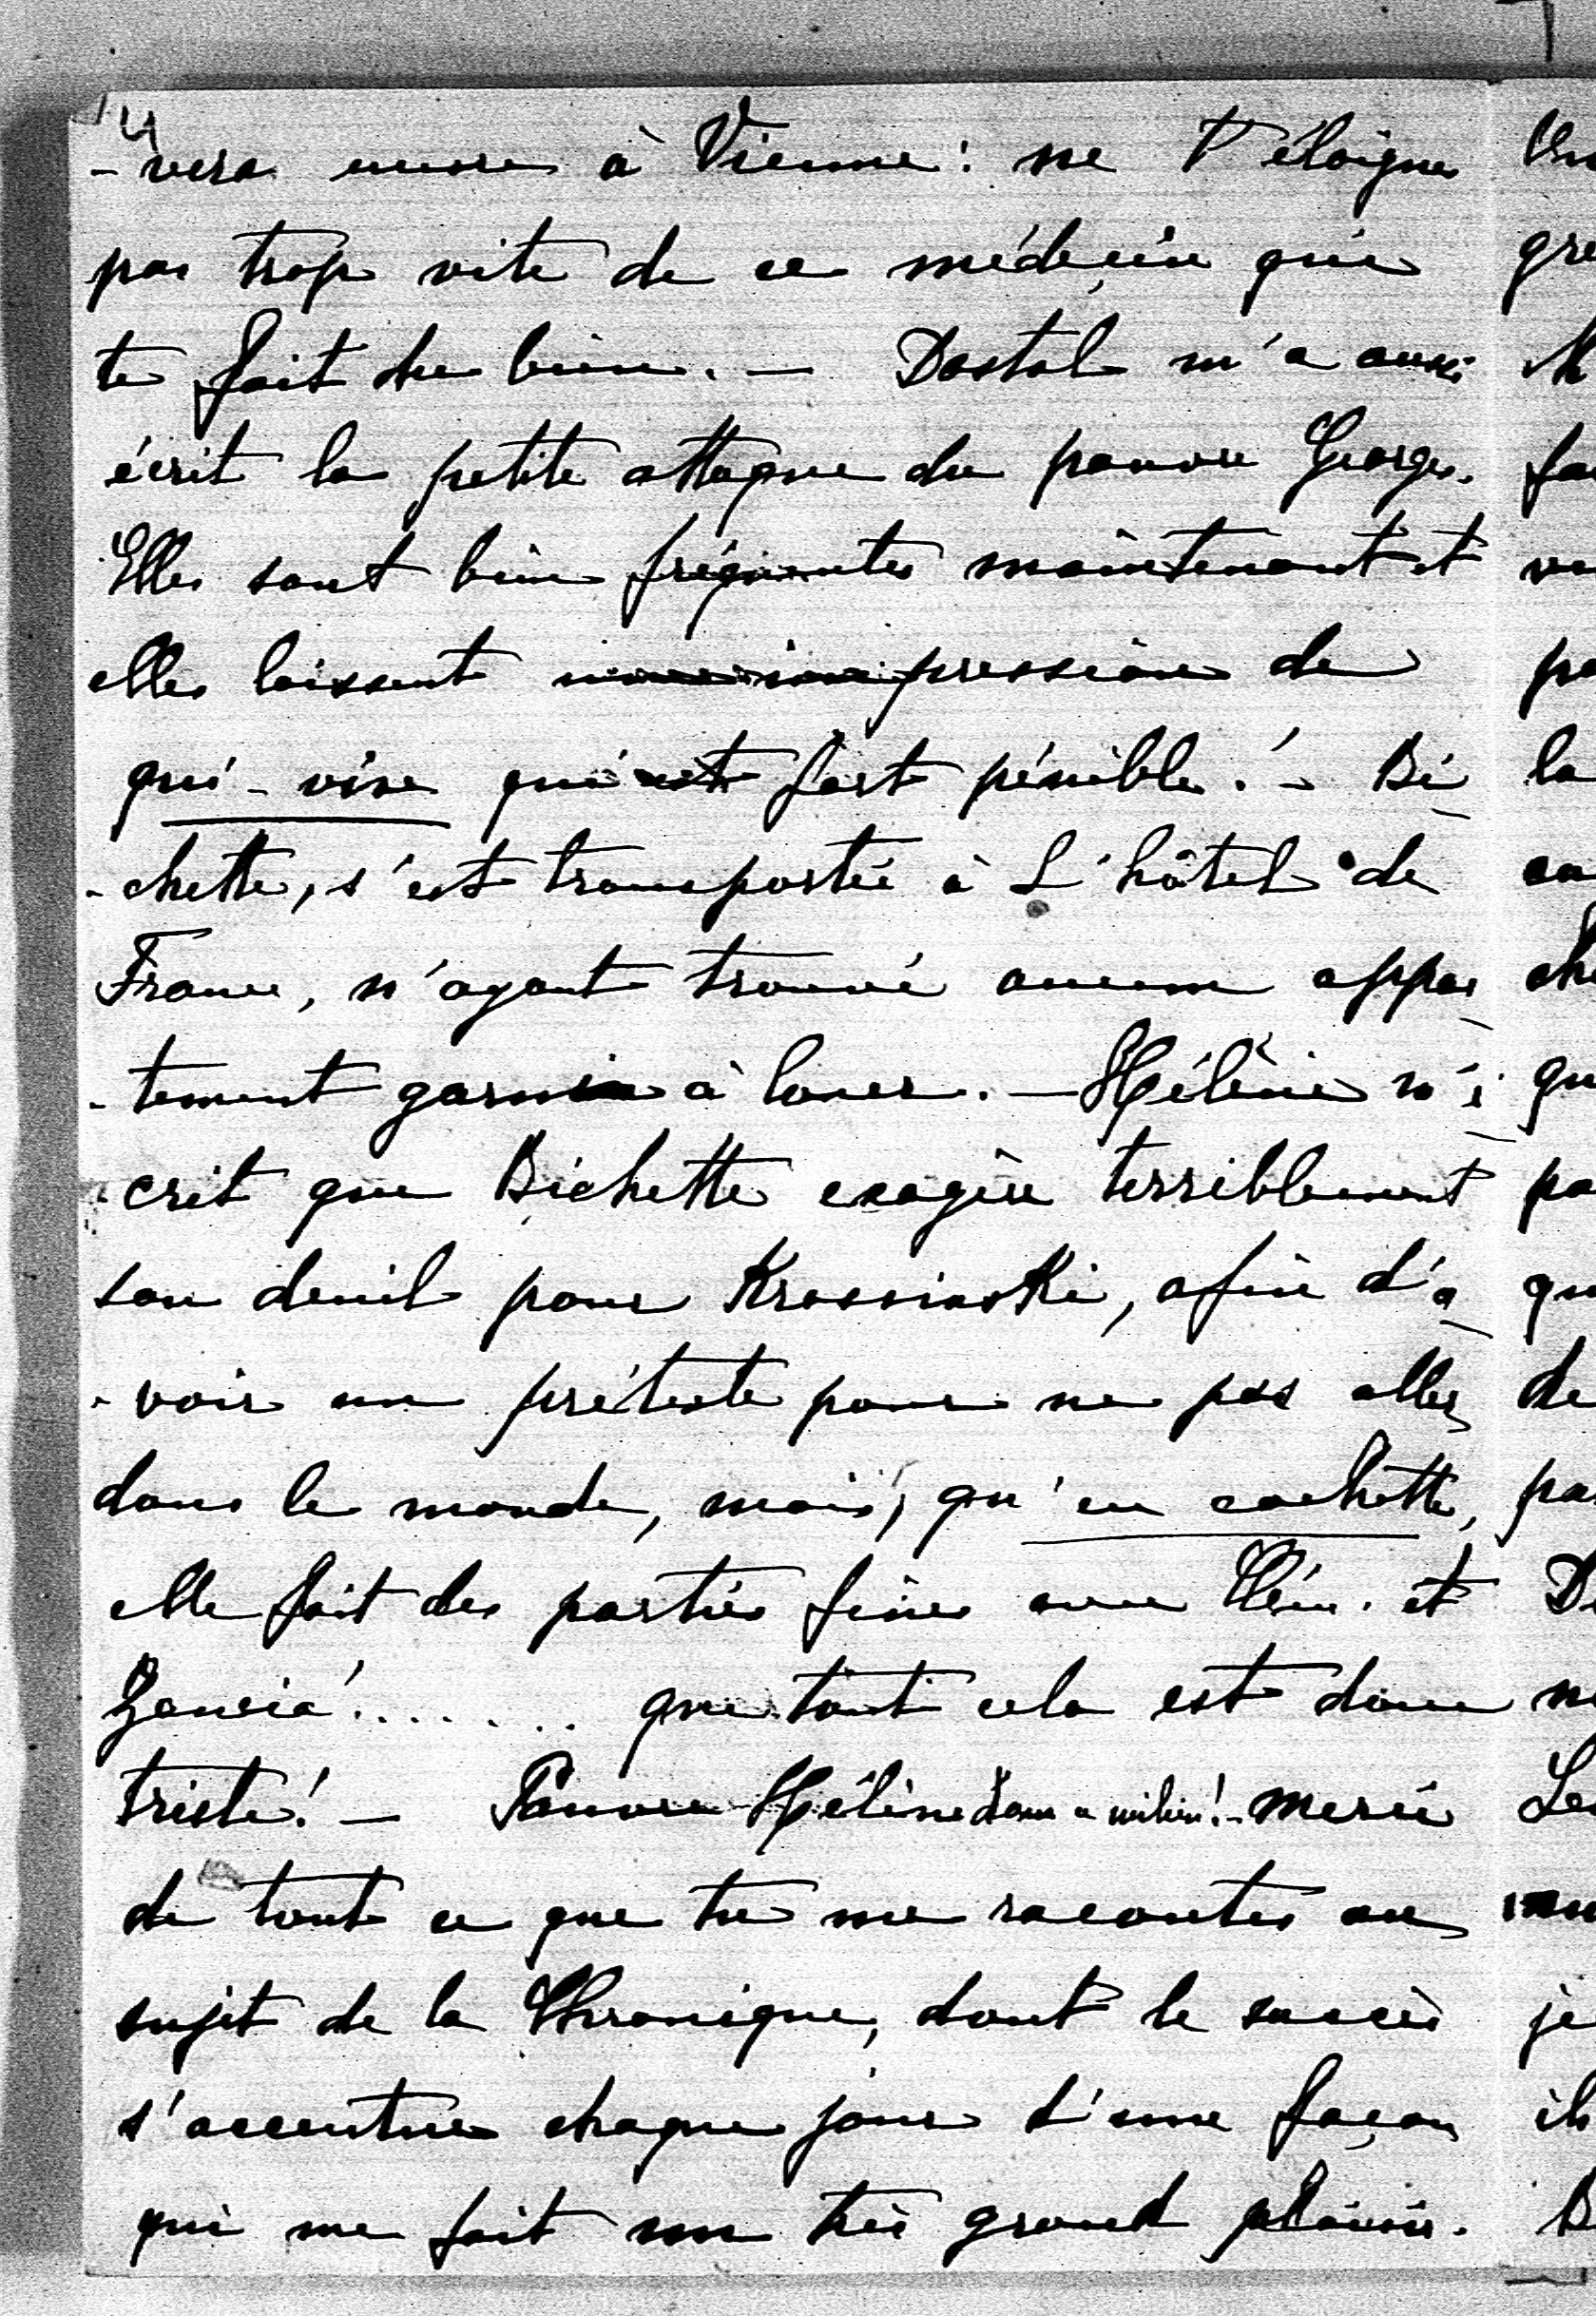 4
-vera encore à Vienne : ne t'éloignes
pas trop vite de ce médecin qui
te fait du bien. — Dostal m'a aussi
écrit la petite attaque du pauvre Georges.
Elles sont bien fréquentes maintenant et
elles laissent une impression de
qui-vive qui est fort pénible ! - Bi
-chette, s'est transportée à L'hôtel de
France, n'ayant trouvé aucun appar
-tement garni à louer. — Hélène m'é
-crit que Bichette exagère terriblement
son deuil pour Krassinski, afin d'a
-voir un prétexte pour ne pas aller
dans le monde, mais, qu'en cachette,
elle fait des parties fines avec Clém. et
....... que tout cela est donc
triste ! — Pauvre Hélène dans ce milieu ! - merci
de tout ce que tu me racontes au
sujet de la Chronique, dont le succès
s'accentue chaque jour d'une façon
qui me fait un très grand plaisir.